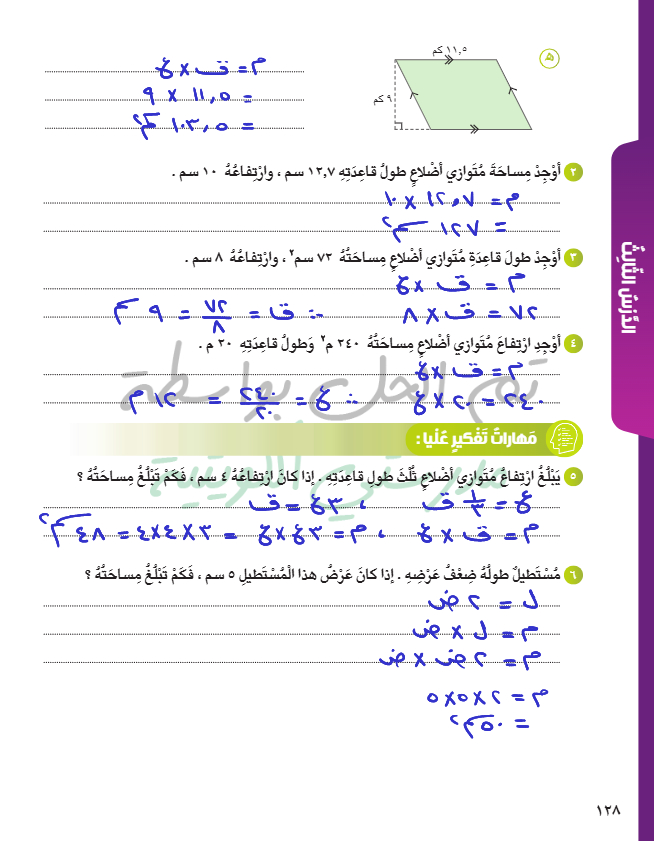 هـ
١١,٥ كم
٩ كم
م = ق × ع
= ١١,٥ × ٩
= ١٠٣,٥ كم٢
٢ أوْجِدْ مِساحَةَ مُتَوازي أضْلاعٍ طولُ قاعِدَتِهِ ١٢,٧ سم ، وارْتِفاعُهُ ١٠ سم .
م = ١٢,٧ × ١٠
= ١٢٧ سم٢
٣ أوْجِدْ طولَ قاعِدَةِ مُتَوازي أضْلاعٍ مِساحَتُهُ ٧٢ سم٢ ، وارْتِفاعُهُ ٨ سم .
م = ق × ع
٧٢ = ق × ٨ ∴ ق = ٧٢/٨ = ٩ سم
٤ أوْجِدِ ارْتِفاعَ مُتَوازي أضْلاعٍ مِساحَتُهُ ٢٤٠ م٢ وَطولُ قاعِدَتِهِ ٢٠ م .
م = ق × ع
٢٤٠ = ٢٠ × ع ∴ ع = ٢٤٠/٢٠ = ١٢ م
تم الحل بواسطة
مَهاراتُ تَفْكيرٍ عُلْيا :
٥ يَبْلُغُ ارْتِفاعُ مُتَوازي أضْلاعٍ ثُلُثَ طولِ قاعِدَتِهِ . إذا كانَ ارْتِفاعُهُ ٤ سم ، فَكَمْ تَبْلُغُ مِساحَتُهُ ؟
ع = ١/٣ ق ، ٣ع = ق
م = ق × ع ، م = ٣ع × ع = ٣×٤×٤ = ٤٨ سم٢
٦ مُسْتَطيلٌ طولُهُ ضِعْفُ عَرْضِهِ . إذا كانَ عَرْضُ هذا الْمُسْتَطيلِ ٥ سم ، فَكَمْ تَبْلُغُ مِساحَتُهُ ؟
ل = ٢ ض
م = ل × ض
م = ٢ ض × ض
م = ٢×٥×٥
= ٥٠ سم٢
الدَّرْسُ الثّالِثُ
١٢٨